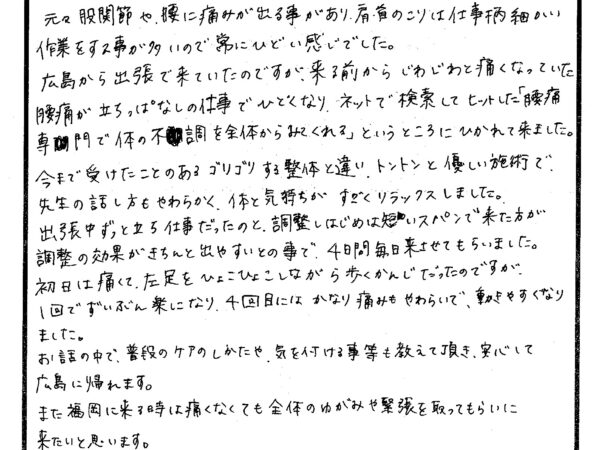 元々股関節や、腰に痛みが出る事があり、肩・首のこりは仕事柄細かい
作業をする事が多いので常にひどい感じでした。
広島から出張で来ていたのですが、来る前からじわじわと痛くなっていた
腰痛が立ちっぱなしの仕事でひどくなり、ネットで検索してヒットした「腰痛
専門で体の不調を全体からみてくれる」というところにひかれて来ました。
今まで受けたことのあるゴリゴリする整体と違い、トントンと優しい施術で、
先生の話し方もやわらかく、体と気持ちがすごくリラックスしました。
出張中ずっと立ち仕事だったのと、調整しはじめは短いスパンで来た方が
調整の効果がきちんと出やすいとの事で、4日間毎日来させてもらいました。
初日は痛くて、左足をひょこひょこしながら歩くかんじだったのですが、
1回でずいぶん楽になり、4回目にはかなり痛みもやわらいで、動きやすくなり
ました。
お話の中で、普段のケアのしかたや、気を付ける事等も教えて頂き、安心して
広島に帰れます。
また福岡に来る時は痛くなくても全体のゆがみや緊張を取ってもらいに
来たいと思います。